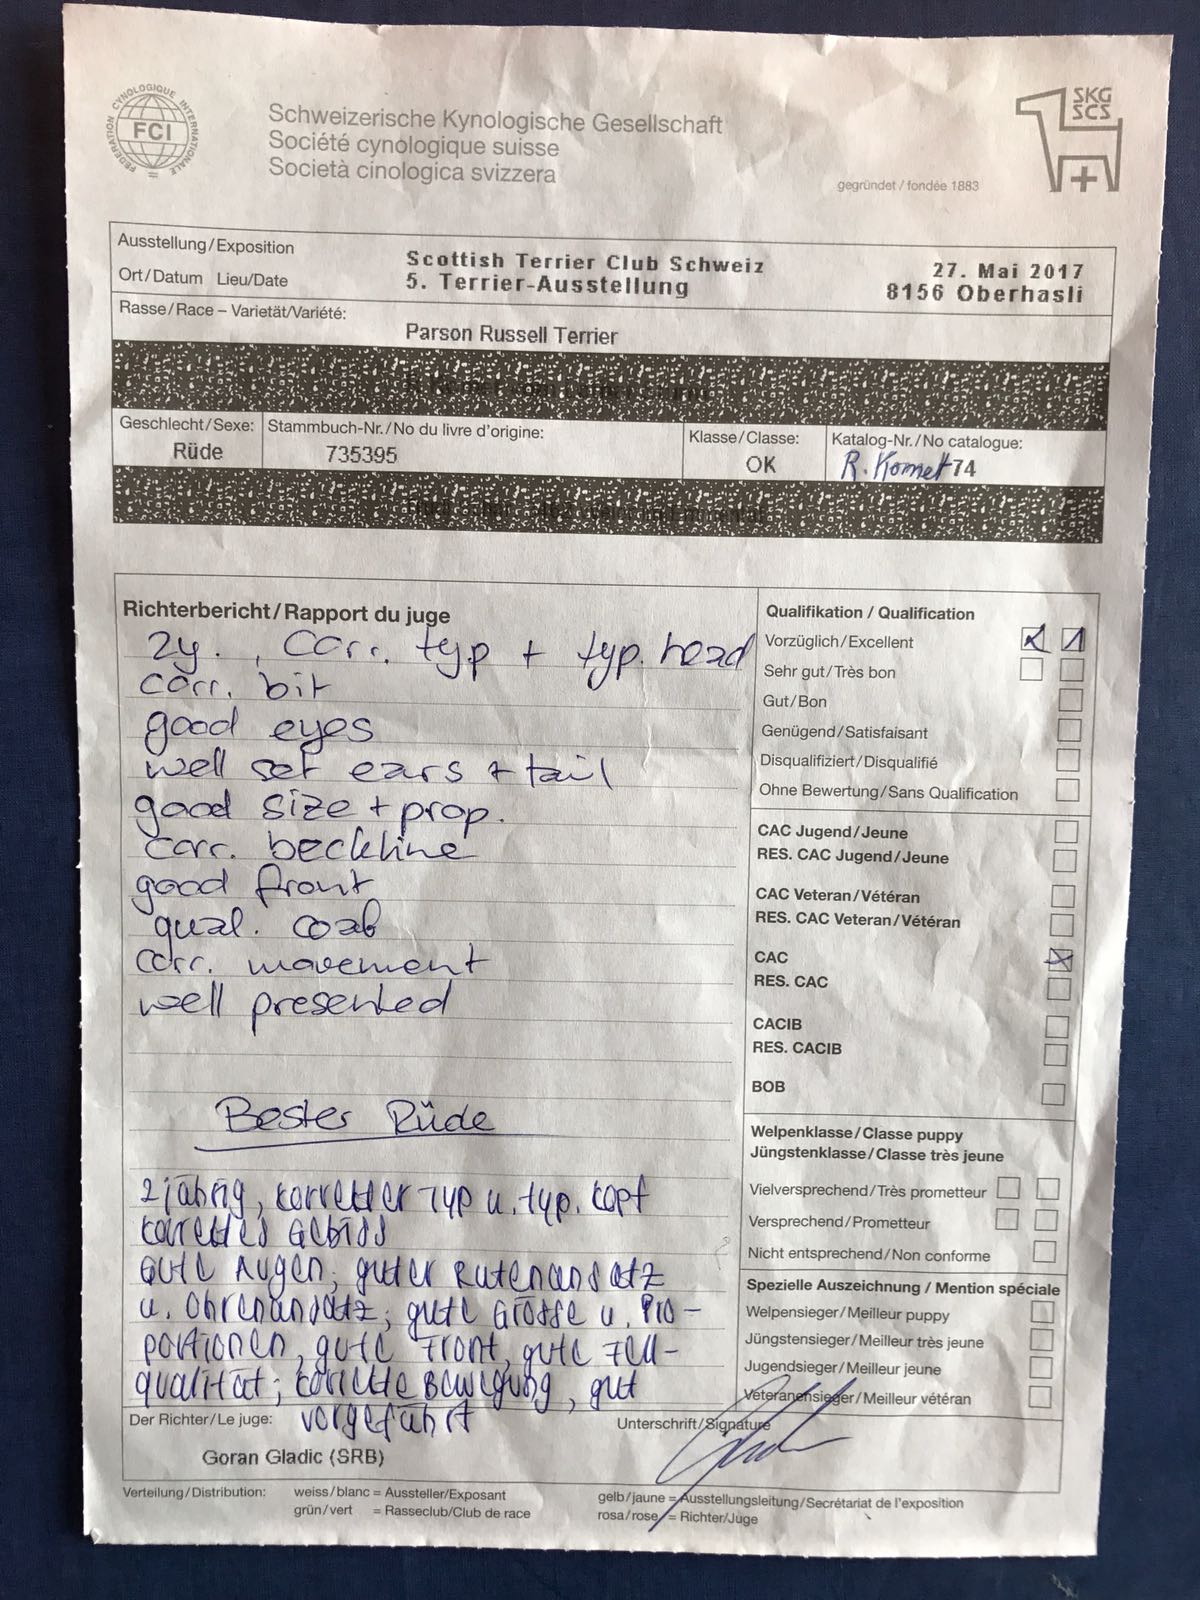 FÉDÉRATION CYNOLOGIQUE INTERNATIONALE
FCI
Schweizerische Kynologische Gesellschaft
Société cynologique suisse
Società cinologica svizzera
SKG
SCS
gegründet / fondée 1883
Ausstellung/Exposition
Ort/Datum Lieu/Date
Scottish Terrier Club Schweiz
5. Terrier-Ausstellung
27. Mai 2017
8156 Oberhasli
Rasse/Race – Varietät/Variété:
Parson Russell Terrier
Geschlecht/Sexe:
Rüde
Stammbuch-Nr./No du livre d'origine:
735395
Klasse/Classe:
OK
Katalog-Nr./No catalogue:
R. Komet 74
Richterbericht/Rapport du juge
2y. , Corr. typ + typ. head
corr. bit
good eyes
well set ears + tail
good size + prop.
corr. beckline
good front
qual. coat
corr. movement
well presented
Bester Rüde
2 jährig, korrekter Typ u. typ. Kopf
korrektes Gebiss
Gute Augen, guter Rutenansatz
u. Ohrenansatz; gute Grösse u. Pro-
portionen, gute Front, gute Fell-
qualität; korrekte Bewegung, gut
vorgeführt
Qualifikation / Qualification
Vorzüglich/Excellent 1
Sehr gut/Très bon
Gut/Bon
Genügend/Satisfaisant
Disqualifiziert/Disqualifié
Ohne Bewertung/Sans Qualification
CAC Jugend/Jeune
RES. CAC Jugend/Jeune
CAC Veteran/Vétéran
RES. CAC Veteran/Vétéran
CAC
RES. CAC
CACIB
RES. CACIB
BOB
Welpenklasse/Classe puppy
Jüngstenklasse/Classe très jeune
Vielversprechend/Très prometteur
Versprechend/Prometteur
Nicht entsprechend/Non conforme
Spezielle Auszeichnung / Mention spéciale
Welpensieger/Meilleur puppy
Jüngstensieger/Meilleur très jeune
Jugendsieger/Meilleur jeune
Veteranensieger/Meilleur vétéran
Der Richter/Le juge:
Goran Gladic (SRB)
Unterschrift/Signature
Verteilung/Distribution:
weiss/blanc = Aussteller/Exposant
grün/vert = Rasseclub/Club de race
gelb/jaune = Ausstellungsleitung/Secrétariat de l'exposition
rosa/rose = Richter/Juge